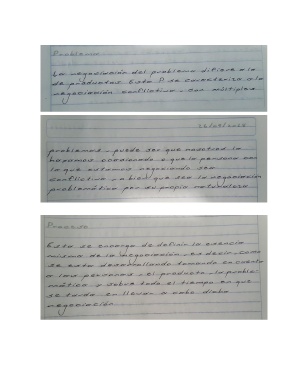 Problema
La negociación del problema difiere a la
de productos. Esta P se caracteriza a la
negociación conflictiva - con múltiples
problemas - puede ser que nosotros lo
hayamos ocasionado o que la persona con
la que estamos negociando sea
conflictiva - o bien que sea la negociación
problemática por su propia naturaleza
Proceso
Esta se encarga de definir la esencia
misma de la negociación, es decir, como
se esta desarrollando tomando en cuenta
a las personas, el producto, la proble-
mática y sobre todo el tiempo en que
se tarda en llevar a cabo dicha
negociación.